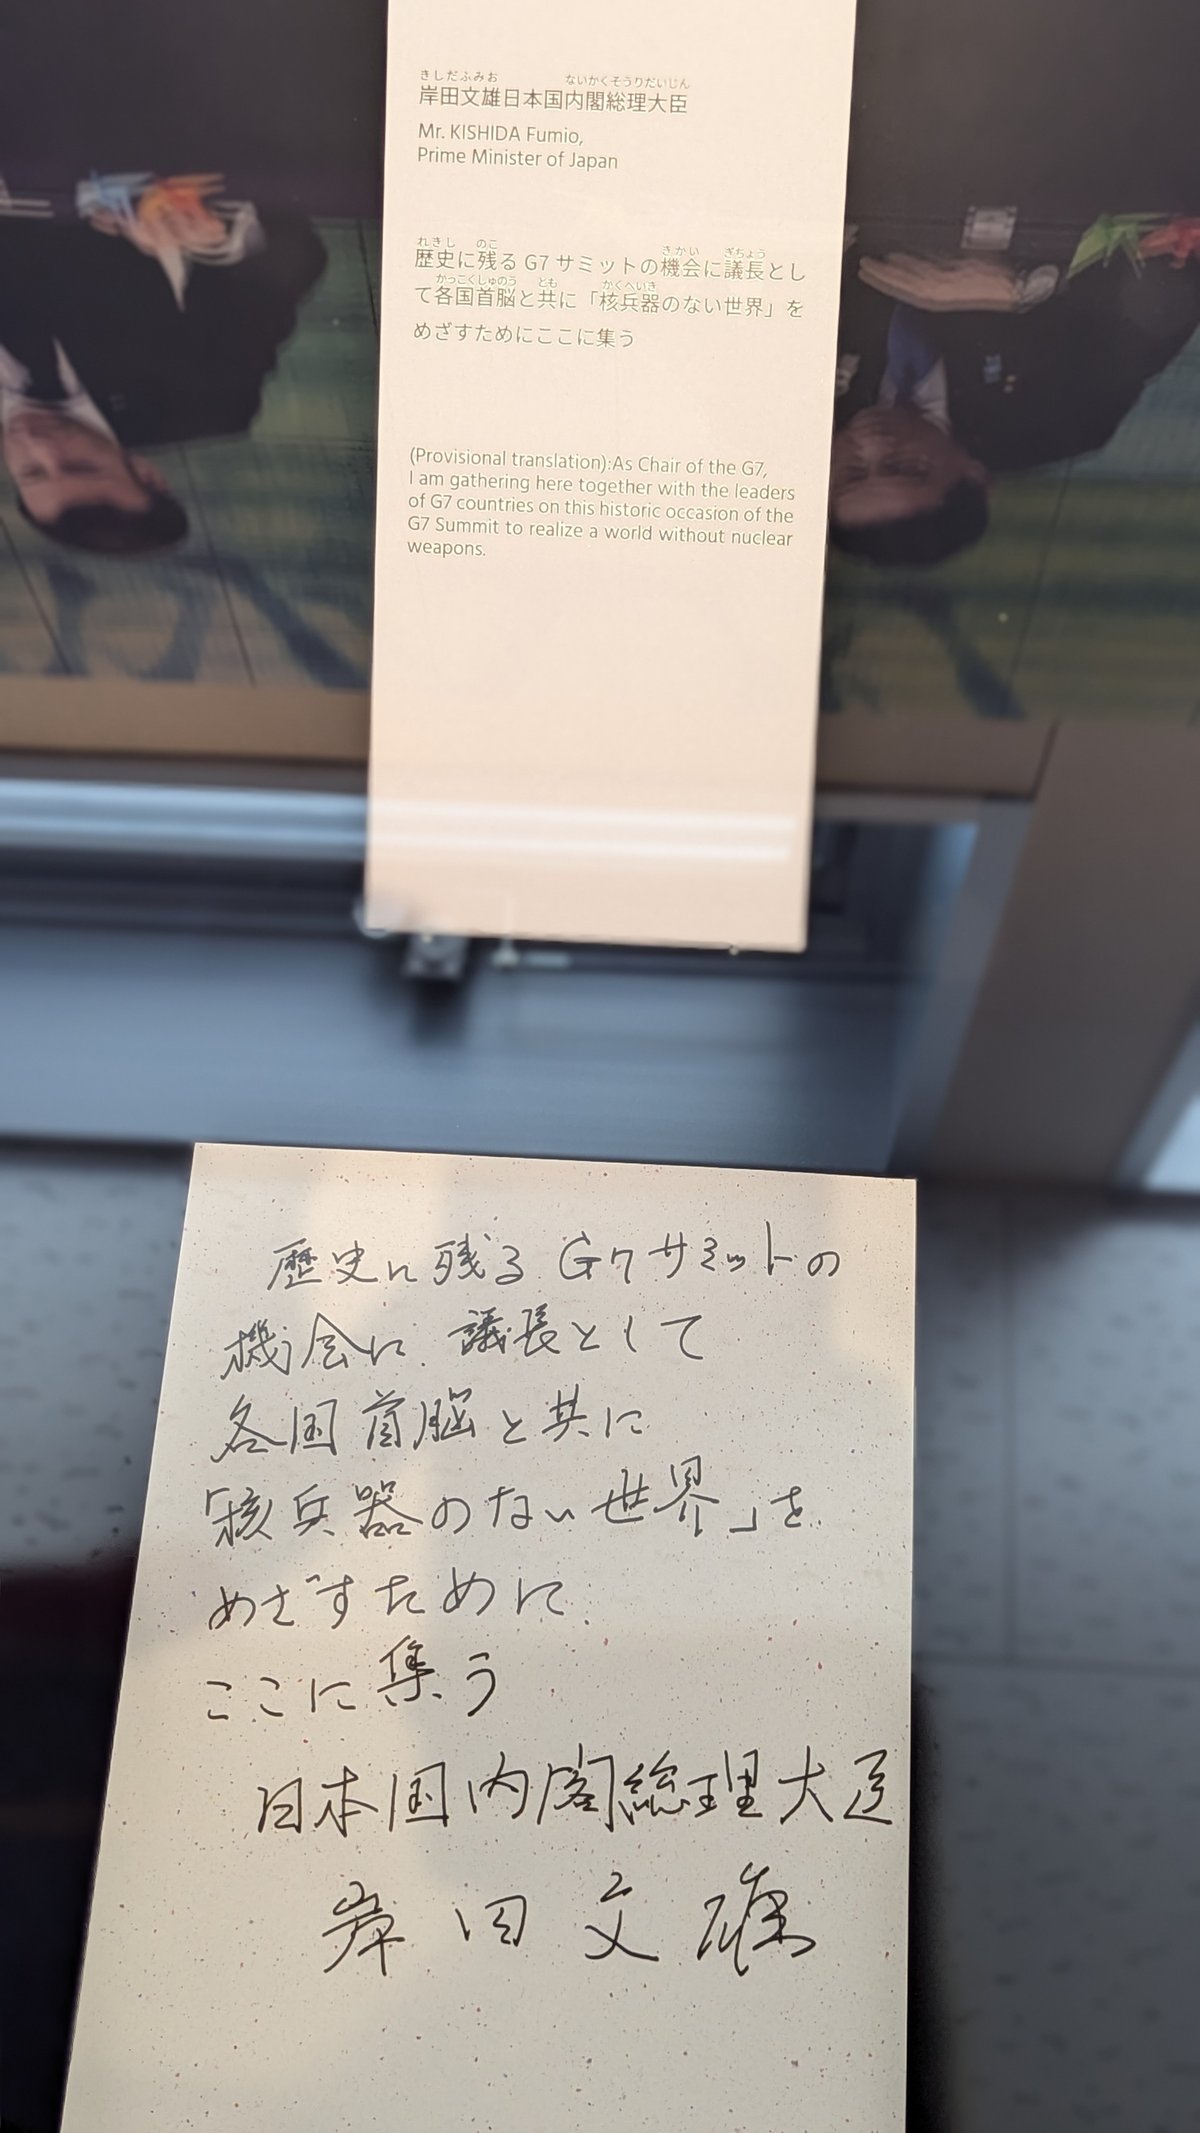 きしだふみお ないかくそうりだいじん
岸田文雄日本国内閣総理大臣
Mr. KISHIDA Fumio,
Prime Minister of Japan
れきし のこ きかい ぎちょう
歴史に残る G7 サミットの機会に議長とし
かっこくしゅのう とも かくへいき
て各国首脳と共に「核兵器のない世界」を
めざすためにここに集う
(Provisional translation):As Chair of the G7,
I am gathering here together with the leaders
of G7 countries on this historic occasion of the
G7 Summit to realize a world without nuclear
weapons.
歴史に残る G7サミットの
機会に 議長として
各国首脳と共に
「核兵器のない世界」を
めざすために
ここに集う
日本国内閣総理大臣
岸田文雄